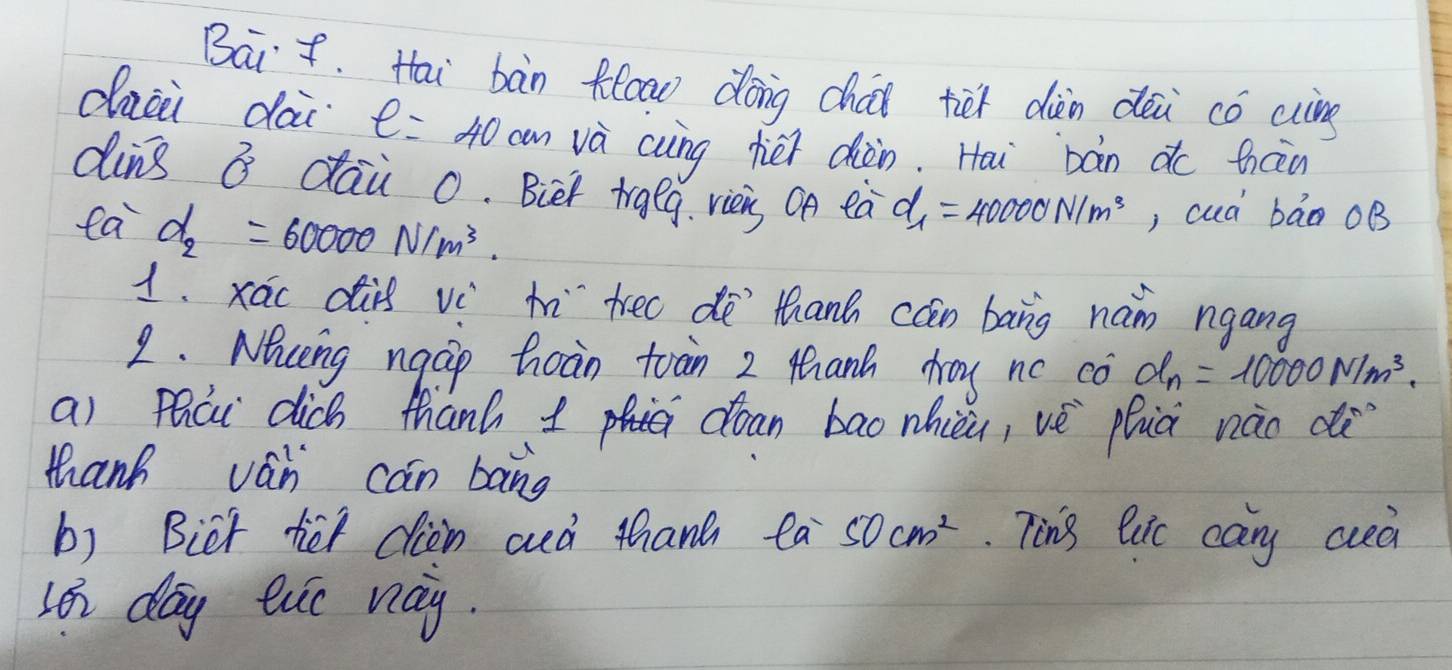 Bài 7. Hai bản kloại đồng chất tiết diện đều có cùng
chiều dài l = 40 cm và cùng tiết diện. Hai bản đc hàn
dính ở đầu O. Biết trglg. riêng OA là d₁ = 40000 N/m³, của bản OB
là d₂ = 60000 N/m³.
1. xác định vị trí treo để thanh cân bằng nằm ngang
2. Nhúng ngập hoàn toàn 2 thanh trong nc có dₙ = 10000 N/m³.
a) Phải dịch thanh 1 đoạn bao nhiêu, về phía nào để
thanh vẫn cân bằng
b) Biết tiết diện của thanh là 50 cm². Tính lực căng của
sợi dây lúc này.